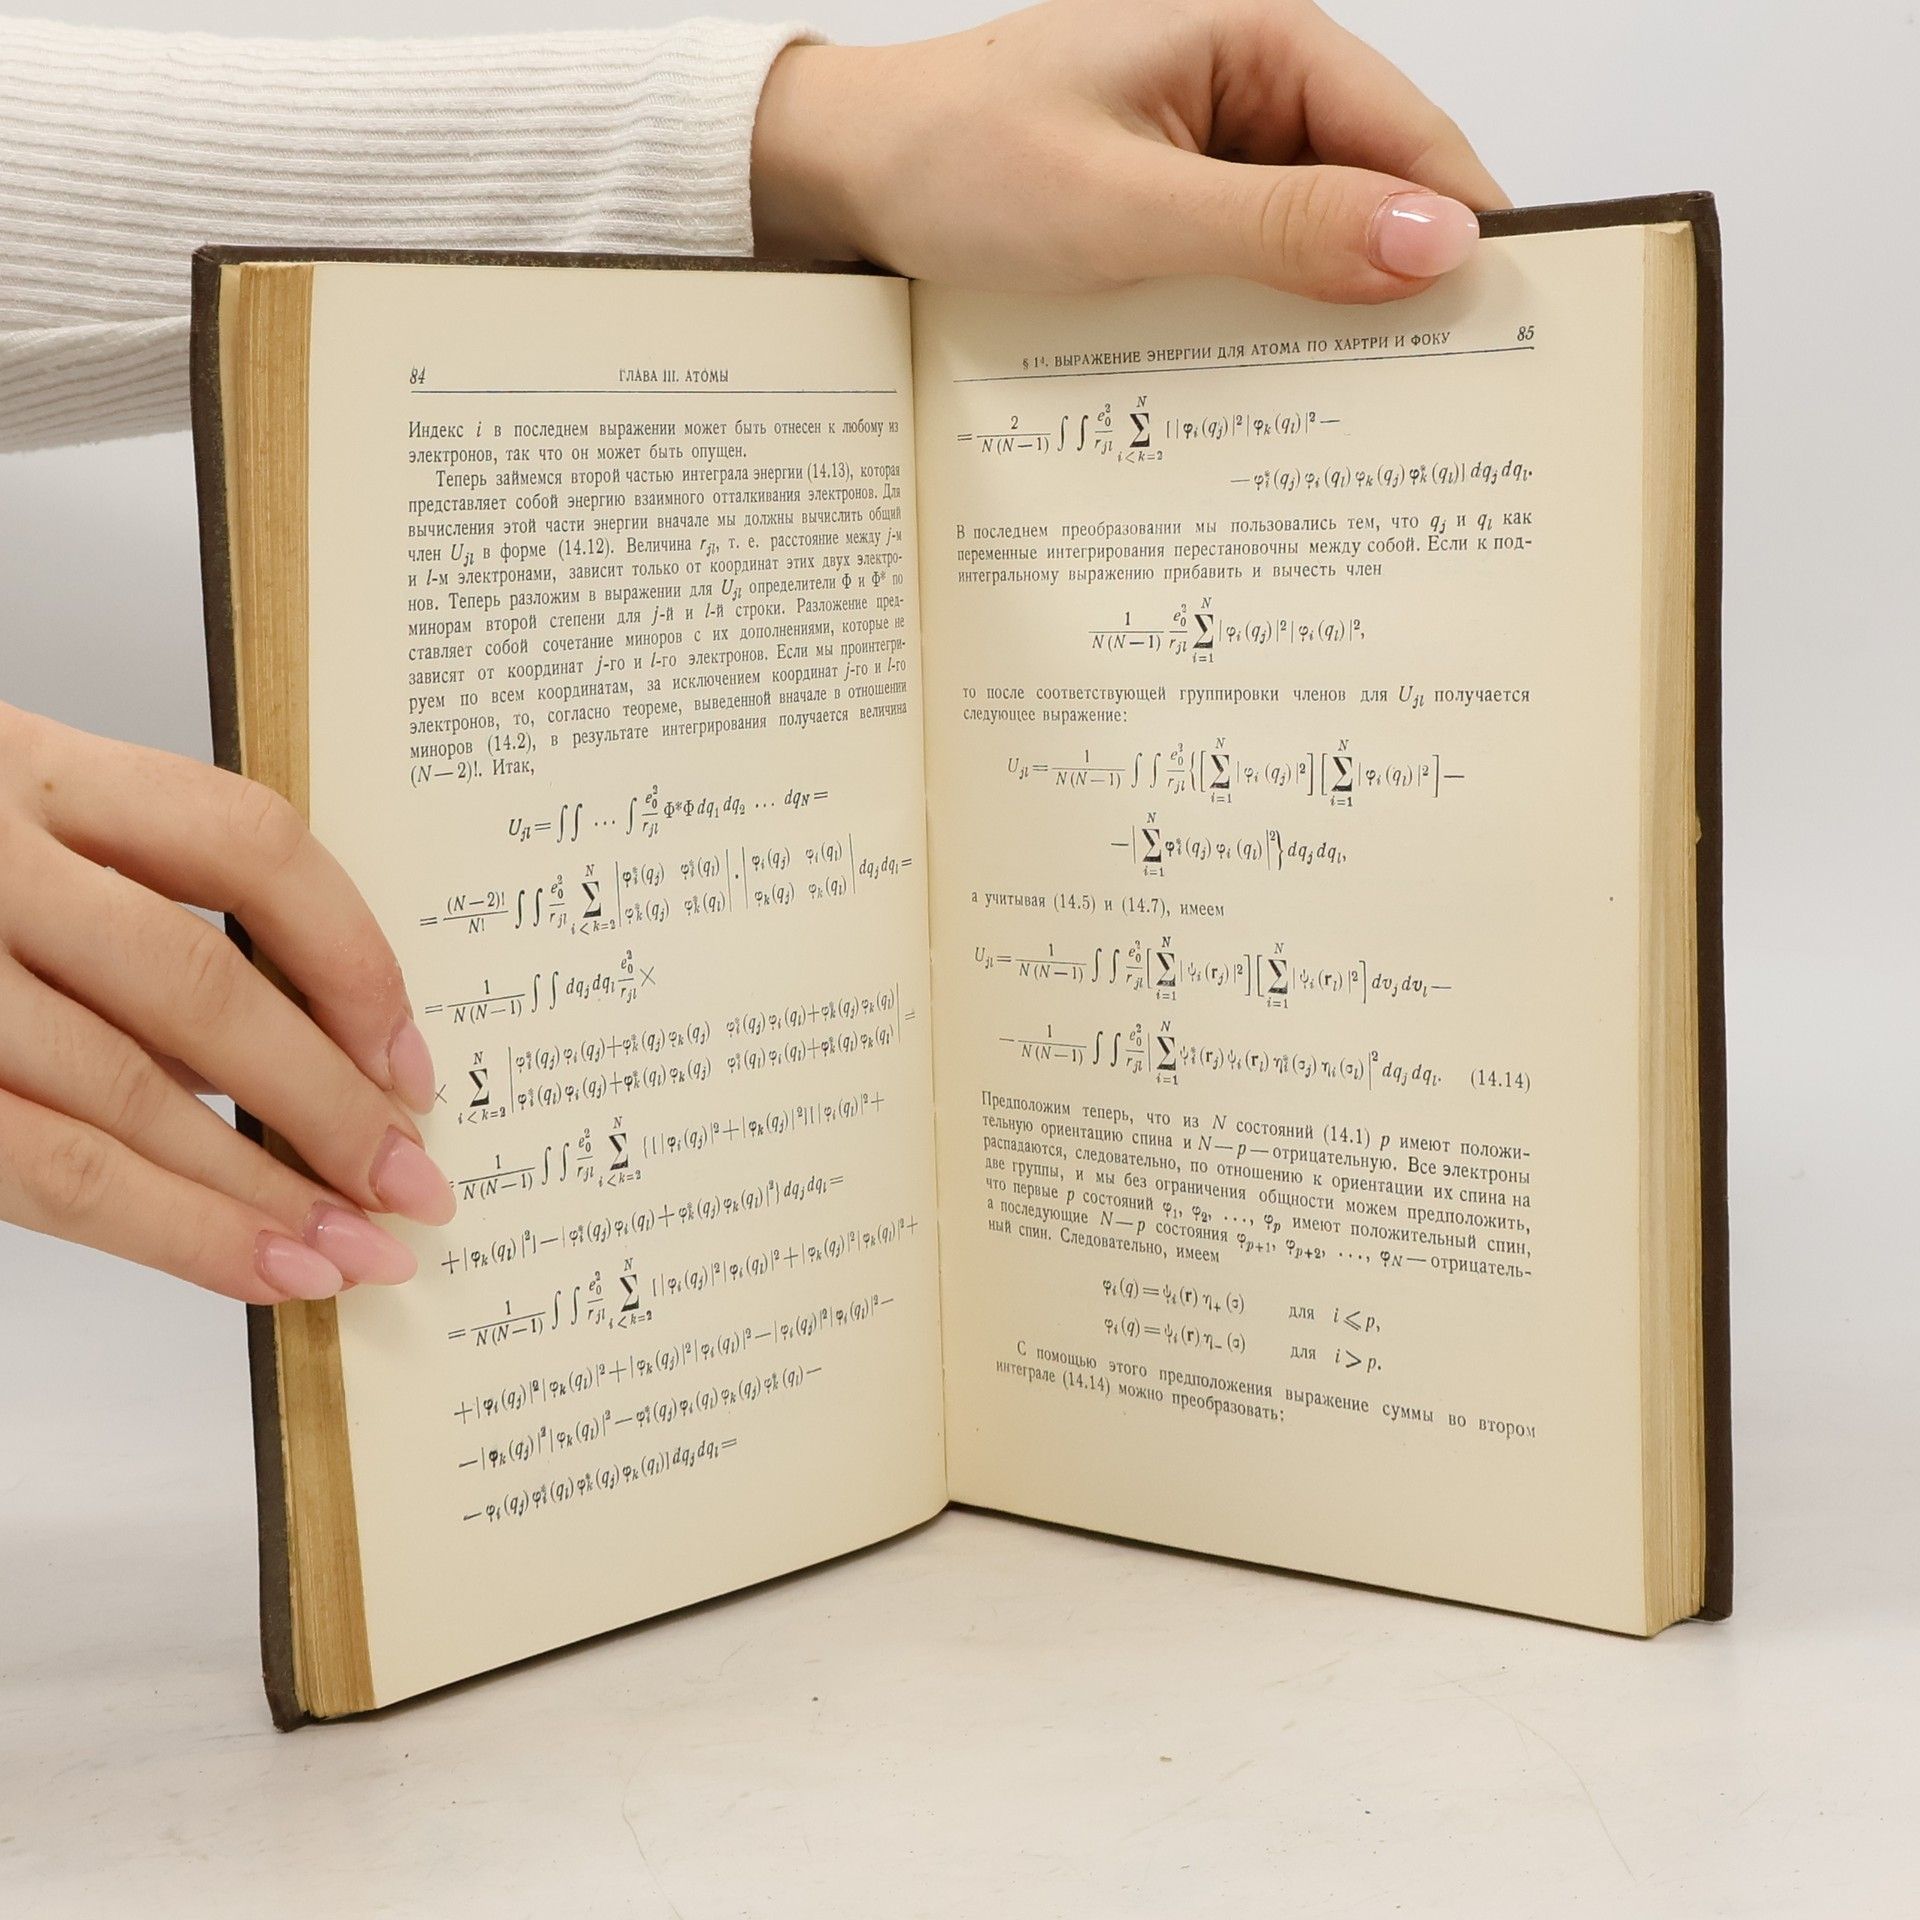 84
ГЛАВА III. АТОМЫ
Индекс i в последнем выражении может быть отнесен к любому из
электронов, так что он может быть опущен.
Теперь займемся второй частью интеграла энергии (14.13), которая
представляет собой энергию взаимного отталкивания электронов. Для
вычисления этой части энергии вначале мы должны вычислить общий
член U_{jl} в форме (14.12). Величина r_{jl}, т. е. расстояние между j-м
и l-м электронами, зависит только от координат этих двух электро-
нов. Теперь разложим в выражении для U_{jl} определители Φ и Φ* по
минорам второй степени для j-й и l-й строки. Разложение пред-
ставляет собой сочетание миноров с их дополнениями, которые не
зависят от координат j-го и l-го электронов. Если мы проинтегри-
руем по всем координатам, за исключением координат j-го и l-го
электронов, то, согласно теореме, выведенной вначале в отношении
миноров (14.2), в результате интегрирования получается величина
(N—2)!. Итак,
U_{jl} = ∫∫ ... ∫ \frac{e_0^2}{r_{jl}} Φ*Φ dq_1 dq_2 ... dq_N =
= \frac{(N—2)!}{N!} ∫∫ \frac{e_0^2}{r_{jl}} \sum_{i<k=2}^{N} \begin{vmatrix} φ_i^*(q_j) & φ_i^*(q_l) \\ φ_k^*(q_j) & φ_k^*(q_l) \end{vmatrix} · \begin{vmatrix} φ_i(q_j) & φ_i(q_l) \\ φ_k(q_j) & φ_k(q_l) \end{vmatrix} dq_j dq_l =
= \frac{1}{N(N—1)} ∫∫ dq_j dq_l \frac{e_0^2}{r_{jl}} ×
× \sum_{i<k=2}^{N} \begin{vmatrix} φ_i^*(q_j) φ_i(q_j) + φ_k^*(q_j) φ_k(q_j) & φ_i^*(q_j) φ_i(q_l) + φ_k^*(q_j) φ_k(q_l) \\ φ_i^*(q_l) φ_i(q_j) + φ_k^*(q_l) φ_k(q_j) & φ_i^*(q_l) φ_i(q_l) + φ_k^*(q_l) φ_k(q_l) \end{vmatrix} =
= \frac{1}{N(N—1)} ∫∫ \frac{e_0^2}{r_{jl}} \sum_{i<k=2}^{N} {[|φ_i(q_j)|^2 + |φ_k(q_j)|^2][|φ_i(q_l)|^2 +
+ |φ_k(q_l)|^2] — |φ_i^*(q_j) φ_i(q_l) + φ_k^*(q_j) φ_k(q_l)|^2} dq_j dq_l =
= \frac{1}{N(N—1)} ∫∫ \frac{e_0^2}{r_{jl}} \sum_{i<k=2}^{N} [|φ_i(q_j)|^2 |φ_i(q_l)|^2 + |φ_k(q_j)|^2 |φ_k(q_l)|^2 +
+ |φ_i(q_j)|^2 |φ_k(q_l)|^2 + |φ_k(q_j)|^2 |φ_i(q_l)|^2 — |φ_i(q_j)|^2 |φ_i(q_l)|^2 —
— |φ_k(q_j)|^2 |φ_k(q_l)|^2 — φ_i^*(q_j) φ_i(q_l) φ_k(q_j) φ_k^*(q_l) —
— φ_i(q_j) φ_i^*(q_l) φ_k^*(q_j) φ_k(q_l)] dq_j dq_l =
§ 14. ВЫРАЖЕНИЕ ЭНЕРГИИ ДЛЯ АТОМА ПО ХАРТРИ И ФОКУ
85
= \frac{2}{N(N—1)} ∫∫ \frac{e_0^2}{r_{jl}} \sum_{i<k=2}^{N} [|φ_i(q_j)|^2 |φ_k(q_l)|^2 —
— φ_i^*(q_j) φ_i(q_l) φ_k(q_j) φ_k^*(q_l)] dq_j dq_l.
В последнем преобразовании мы пользовались тем, что q_j и q_l как
переменные интегрирования перестановочны между собой. Если к под-
интегральному выражению прибавить и вычесть член
\frac{1}{N(N—1)} \frac{e_0^2}{r_{jl}} \sum_{i=1}^{N} |φ_i(q_j)|^2 |φ_i(q_l)|^2,
то после соответствующей группировки членов для U_{jl} получается
следующее выражение:
U_{jl} = \frac{1}{N(N—1)} ∫∫ \frac{e_0^2}{r_{jl}} {[\sum_{i=1}^{N} |φ_i(q_j)|^2] [\sum_{i=1}^{N} |φ_i(q_l)|^2] —
— |\sum_{i=1}^{N} φ_i^*(q_j) φ_i(q_l)|^2} dq_j dq_l,
а учитывая (14.5) и (14.7), имеем
U_{jl} = \frac{1}{N(N—1)} ∫∫ \frac{e_0^2}{r_{jl}} [\sum_{i=1}^{N} |ψ_i(r_j)|^2] [\sum_{i=1}^{N} |ψ_i(r_l)|^2] dv_j dv_l —
— \frac{1}{N(N—1)} ∫∫ \frac{e_0^2}{r_{jl}} |\sum_{i=1}^{N} ψ_i^*(r_j) ψ_i(r_l) η_i^*(σ_j) η_i(σ_l)|^2 dq_j dq_l. (14.14)
Предположим теперь, что из N состояний (14.1) p имеют положи-
тельную ориентацию спина и N—p—отрицательную. Все электроны
распадаются, следовательно, по отношению к ориентации их спина на
две группы, и мы без ограничения общности можем предположить,
что первые p состояний φ_1, φ_2, ..., φ_p имеют положительный спин,
а последующие N—p состояния φ_{p+1}, φ_{p+2}, ..., φ_N—отрицатель-
ный спин. Следовательно, имеем
φ_i(q) = ψ_i(r) η_+(σ) для i ⩽ p,
φ_i(q) = ψ_i(r) η_-(σ) для i > p.
С помощью этого предположения выражение суммы во втором
интеграле (14.14) можно преобразовать: